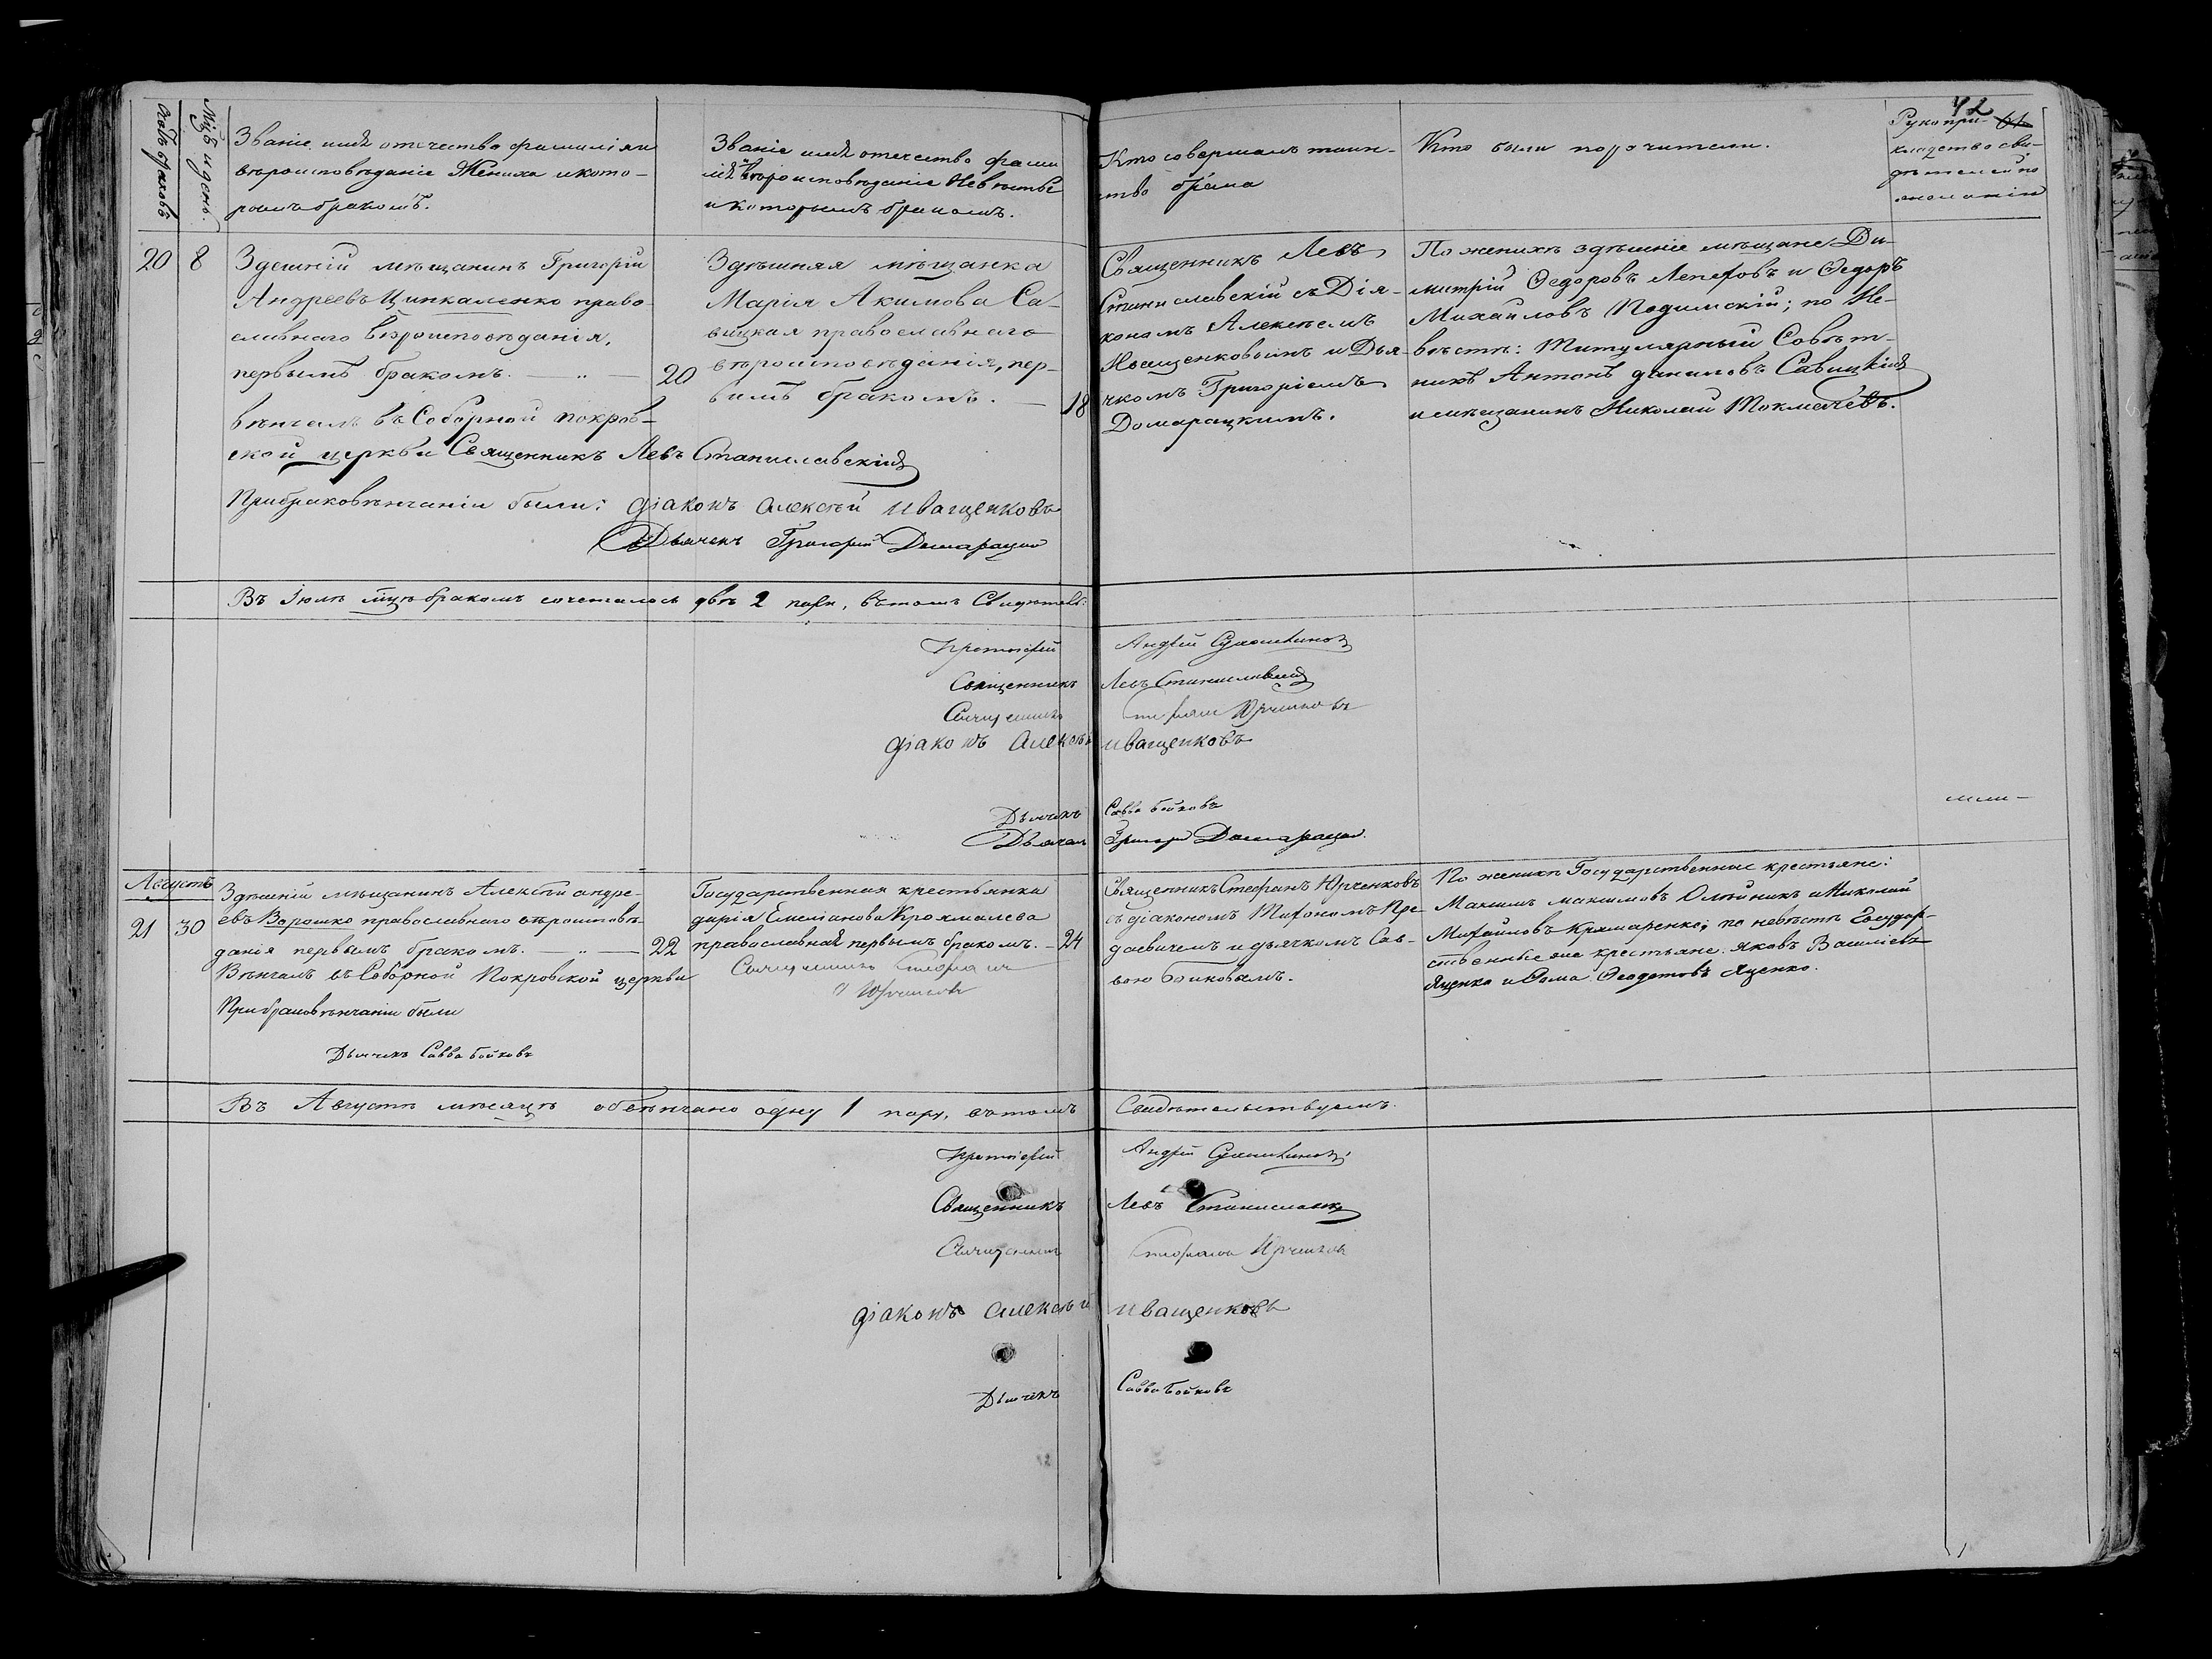 42
Счетъ браковъ
Мцъ и день.
Званіе имя отечество фамилія и
вѣроисповѣданіе Жениха и кото-
рымъ бракомъ.
Званіе имя отечество фами
лія и вѣроисповѣданіе Невѣсты
и которымъ бракомъ.
Кто совершалъ таин-
ство брака
Кто были поручители.
Рукопри-
кладство сви-
дѣтелей по
желанію
20 8
Здешній мѣщанинъ Григорій
Андреевъ Цинкаленко право-
славнаго вѣроисповѣданія,
первымъ бракомъ. 20
вѣнчалъ въ Соборной Покров-
ской церкви Священникъ Левъ Станиславскій
При браковѣнчаніи были: діаконъ Алексѣй Иващенковъ
Дьячекъ Григорій Домарацкій
Здѣшняя мѣщанка
Марія Акимова Са-
вицкая православнаго
вѣроисповѣданія, пер-
вымъ бракомъ. 18
Священникъ Левъ
Станиславскій съ Дія-
кономъ Алексѣемъ
Иващенковымъ и Дья-
чкомъ Григоріемъ
Домарацкимъ.
По женихѣ здѣшніе мѣщане Ди-
митрій Ѳедоровъ Лепеховъ и Ѳедоръ
Михайловъ Подимскій; по Не-
вѣстѣ: Титулярный Совѣт-
никъ Антонъ Даниловъ Савицкій
и мѣщанинъ Николай Токмачевъ.
Въ Іюлѣ мцѣ бракомъ сочеталось двѣ 2 пары, въ томъ Свидѣтель:
Протоіерей Андрей
Священникъ Левъ Станиславскій
Священникъ Стефанъ Юрченковъ
діаконъ Алексѣй Иващенковъ
Дьячекъ Савва Бойковъ
Дьячекъ Григорій Домарацкій
Августъ
21 30
Здѣшній мѣщанинъ Алексѣй Андре-
евъ Ворошко православнаго вѣроисповѣ-
данія первымъ бракомъ. 22
Вѣнчалъ въ Соборной Покровской церкви
Священникъ Стефанъ
Юрченковъ
При браковѣнчаніи были
Дьячекъ Савва Бойковъ
Государственная крестьянка
Дарія Емеліанова Крохмалева
православная первымъ бракомъ. 24
Священникъ Стефанъ Юрченковъ
съ діакономъ Тихономъ Пре-
даевичемъ и дьячкомъ Сав-
вою Бойковымъ.
По женихѣ Государственные крестьяне:
Максимъ Максимовъ Олѣйникъ и Николай
Михайловъ Крамаренко; по невѣстѣ Государ-
ственные же крестьяне. Яковъ Василіевъ
Яценко и Ѳома Ѳеодотовъ Яценко.
Въ Августѣ мѣсяцѣ обвѣнчано одну 1 пару, въ томъ Свидѣтельствуемъ.
Протоіерей Андрей
Священникъ Левъ Станиславскій
Священникъ Стефанъ Юрченковъ
діаконъ Алексѣй Иващенковъ
Дьячекъ Савва Бойковъ